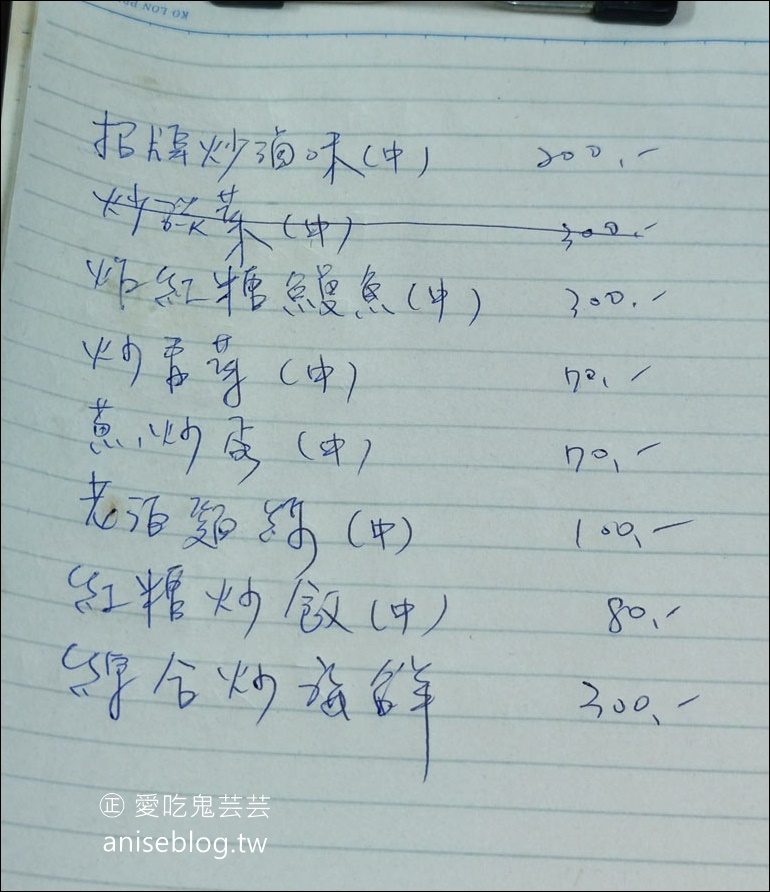 KO LON PE
招牌炒滷味(中) 200.-
炒 菜(中) 300.-
炸紅糖鰻魚(中) 300.-
炒 芽(中) 70.-
蔥炒蛋(中) 70.-
老酒麵線(中) 100.-
紅糖炒飯(中) 80.-
綜合炒海鮮 300.-
正 愛吃鬼芸芸
aniseblog.tw